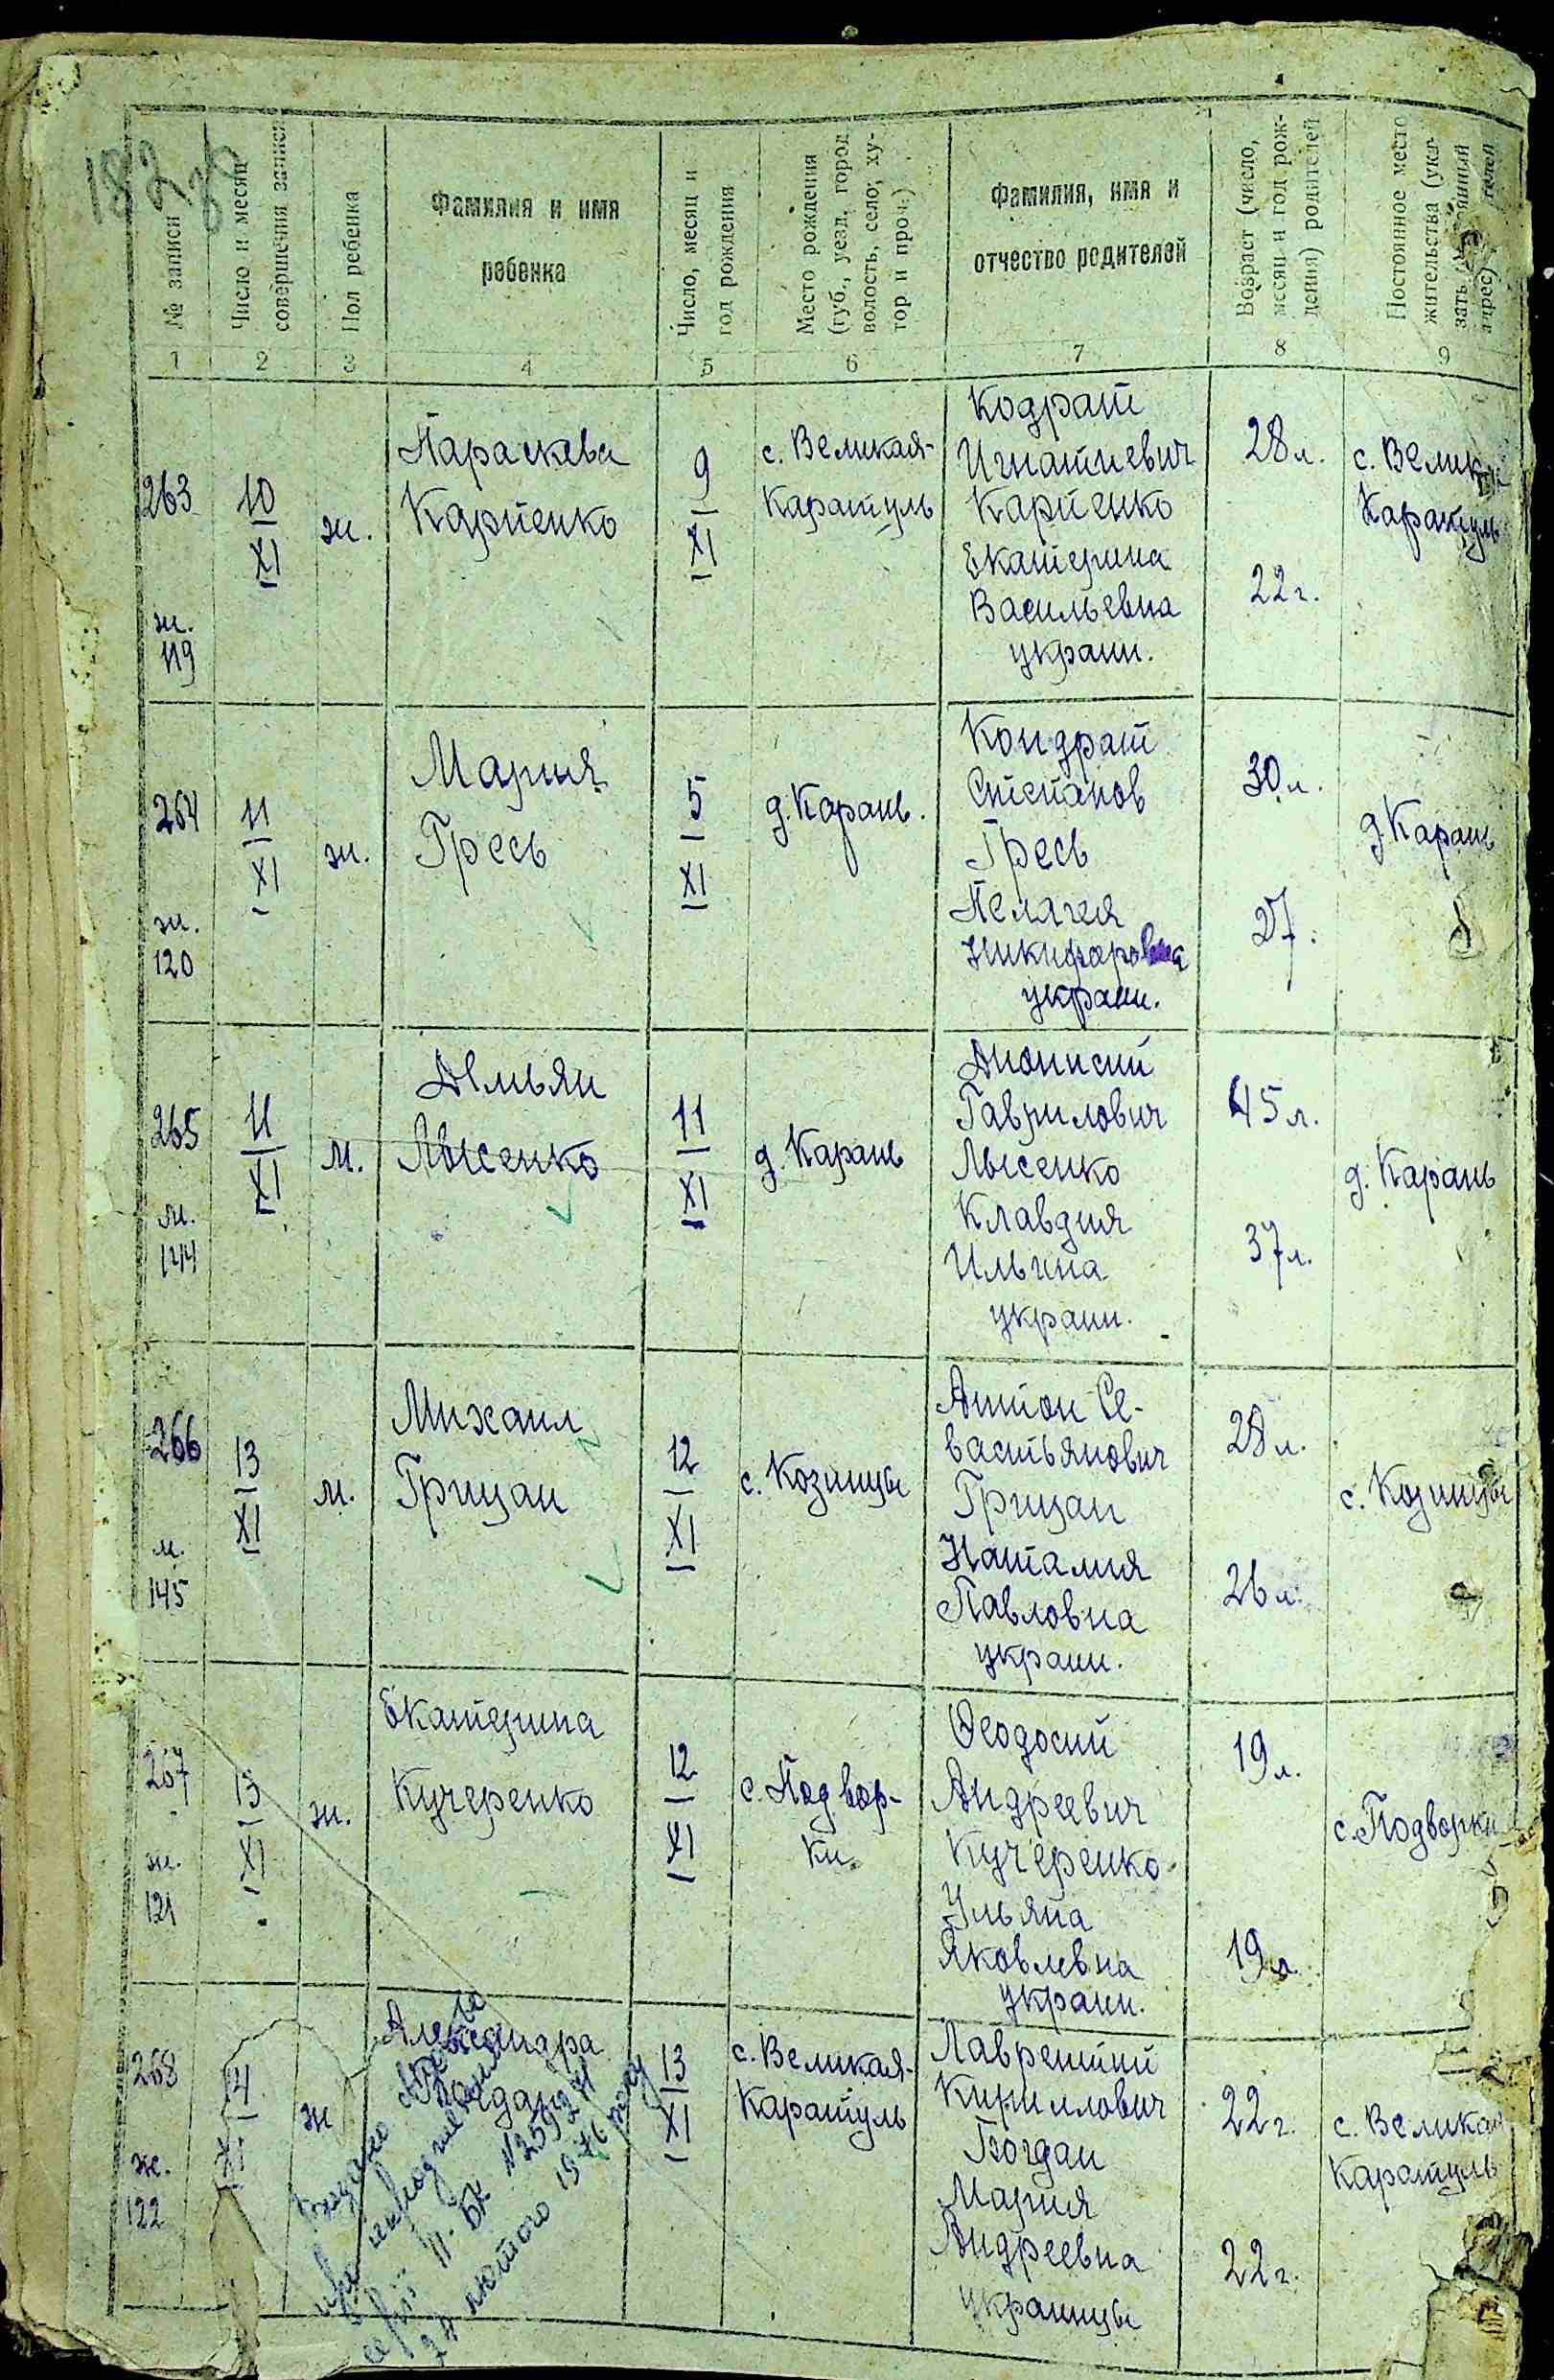 182 зв
№ записи
Число и месяц
совершения записи
Пол ребенка
Фамилия и имя
ребенка
Число, месяц и
год рождения
Место рождения
(губ., уезд, город,
волость, село, ху-
тор и проч.)
Фамилия, имя и
отчество родителей
Возраст (число,
месяц и год рож-
дения) родителей
Постоянное место
жительства (ука-
зать
адрес)
1 2 3 4 5 6 7 8 9
263
ж.
119
10
XI
ж.
Параскева
Карпенко
9
XI
с. Великая-
Каратуль
Кодрат
Игнатиевич
Карпенко
Екатерина
Васильевна
украин.
28 л.
22 г.
с. Великая
Каратуль
264
ж.
120
11
XI
ж.
Мария
Гресь
5
XI
д. Карань.
Кондрат
Степанов
Гресь
Пелагея
Никифоровна
украин.
30 л.
27.
д. Карань
265
м.
144
11
XI
м.
Демьян
Лысенко
11
XI
д. Карань
Дионисий
Гаврилович
Лысенко
Клавдия
Ильина
украин.
45 л.
37 л.
д. Карань
266
м.
145
13
XI
м.
Михаил
Грицан
12
XI
с. Козинцы
Антон Се-
вастьянович
Грицан
Наталия
Павловна
украин.
28 л.
26 л.
с. Козинцы
267
ж.
121
13
XI
ж.
Екатерина
Кучеренко
12
XI
с. Подвор-
ки
Феодосий
Андреевич
Кучеренко
Ульяна
Яковлевна
украин.
19 л.
19 л.
с. Подворки
268
ж.
122
14
XI
ж
Александра
Богдан
13
XI
с. Великая-
Каратуль
Лаврентий
Кириллович
Богдан
Мария
Андреевна
украинцы
22 г.
22 г.
с. Великая
Каратуль
Видано
про народження
серії II-БК № 259271
24 лютого 1976 року